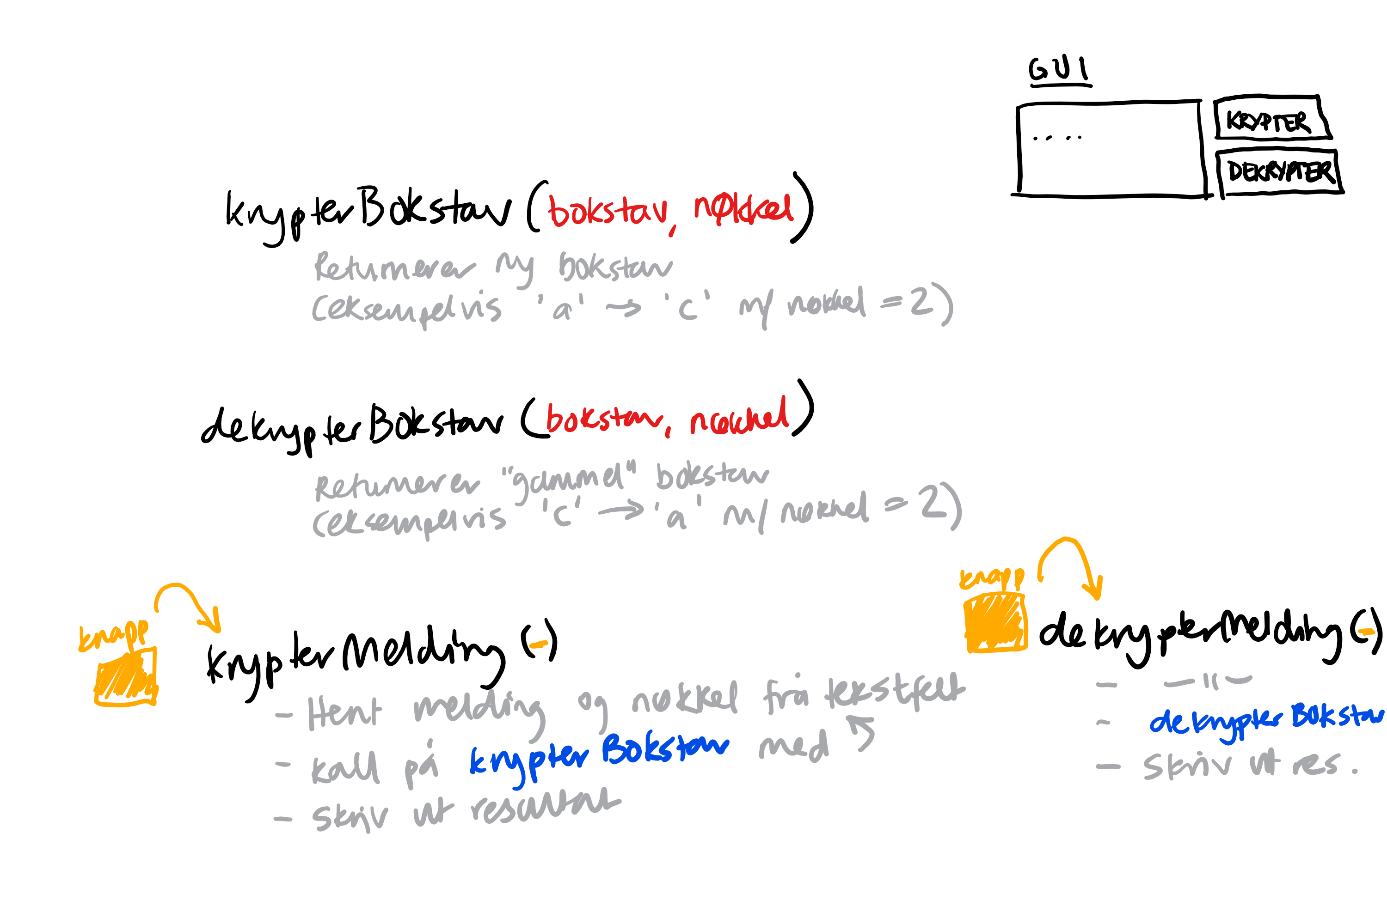 GUI
....
KRYPTER
DEKRYPTER
krypterBokstav (bokstav, nøkkel)
Returnerer ny bokstav
(eksempelvis 'a' → 'c' m/ nøkkel = 2)
dekrypterBokstav (bokstav, nøkkel)
Returnerer "gammel" bokstav
(eksempelvis 'c' → 'a' m/ nøkkel = 2)
knapp
krypterMelding (-)
- Hent melding og nøkkel frå tekstfelt
- kall på krypterBokstav med
- Skriv ut resultat
knapp
dekrypterMelding (-)
- —||—
- dekrypterBokstav
- Skriv ut res.